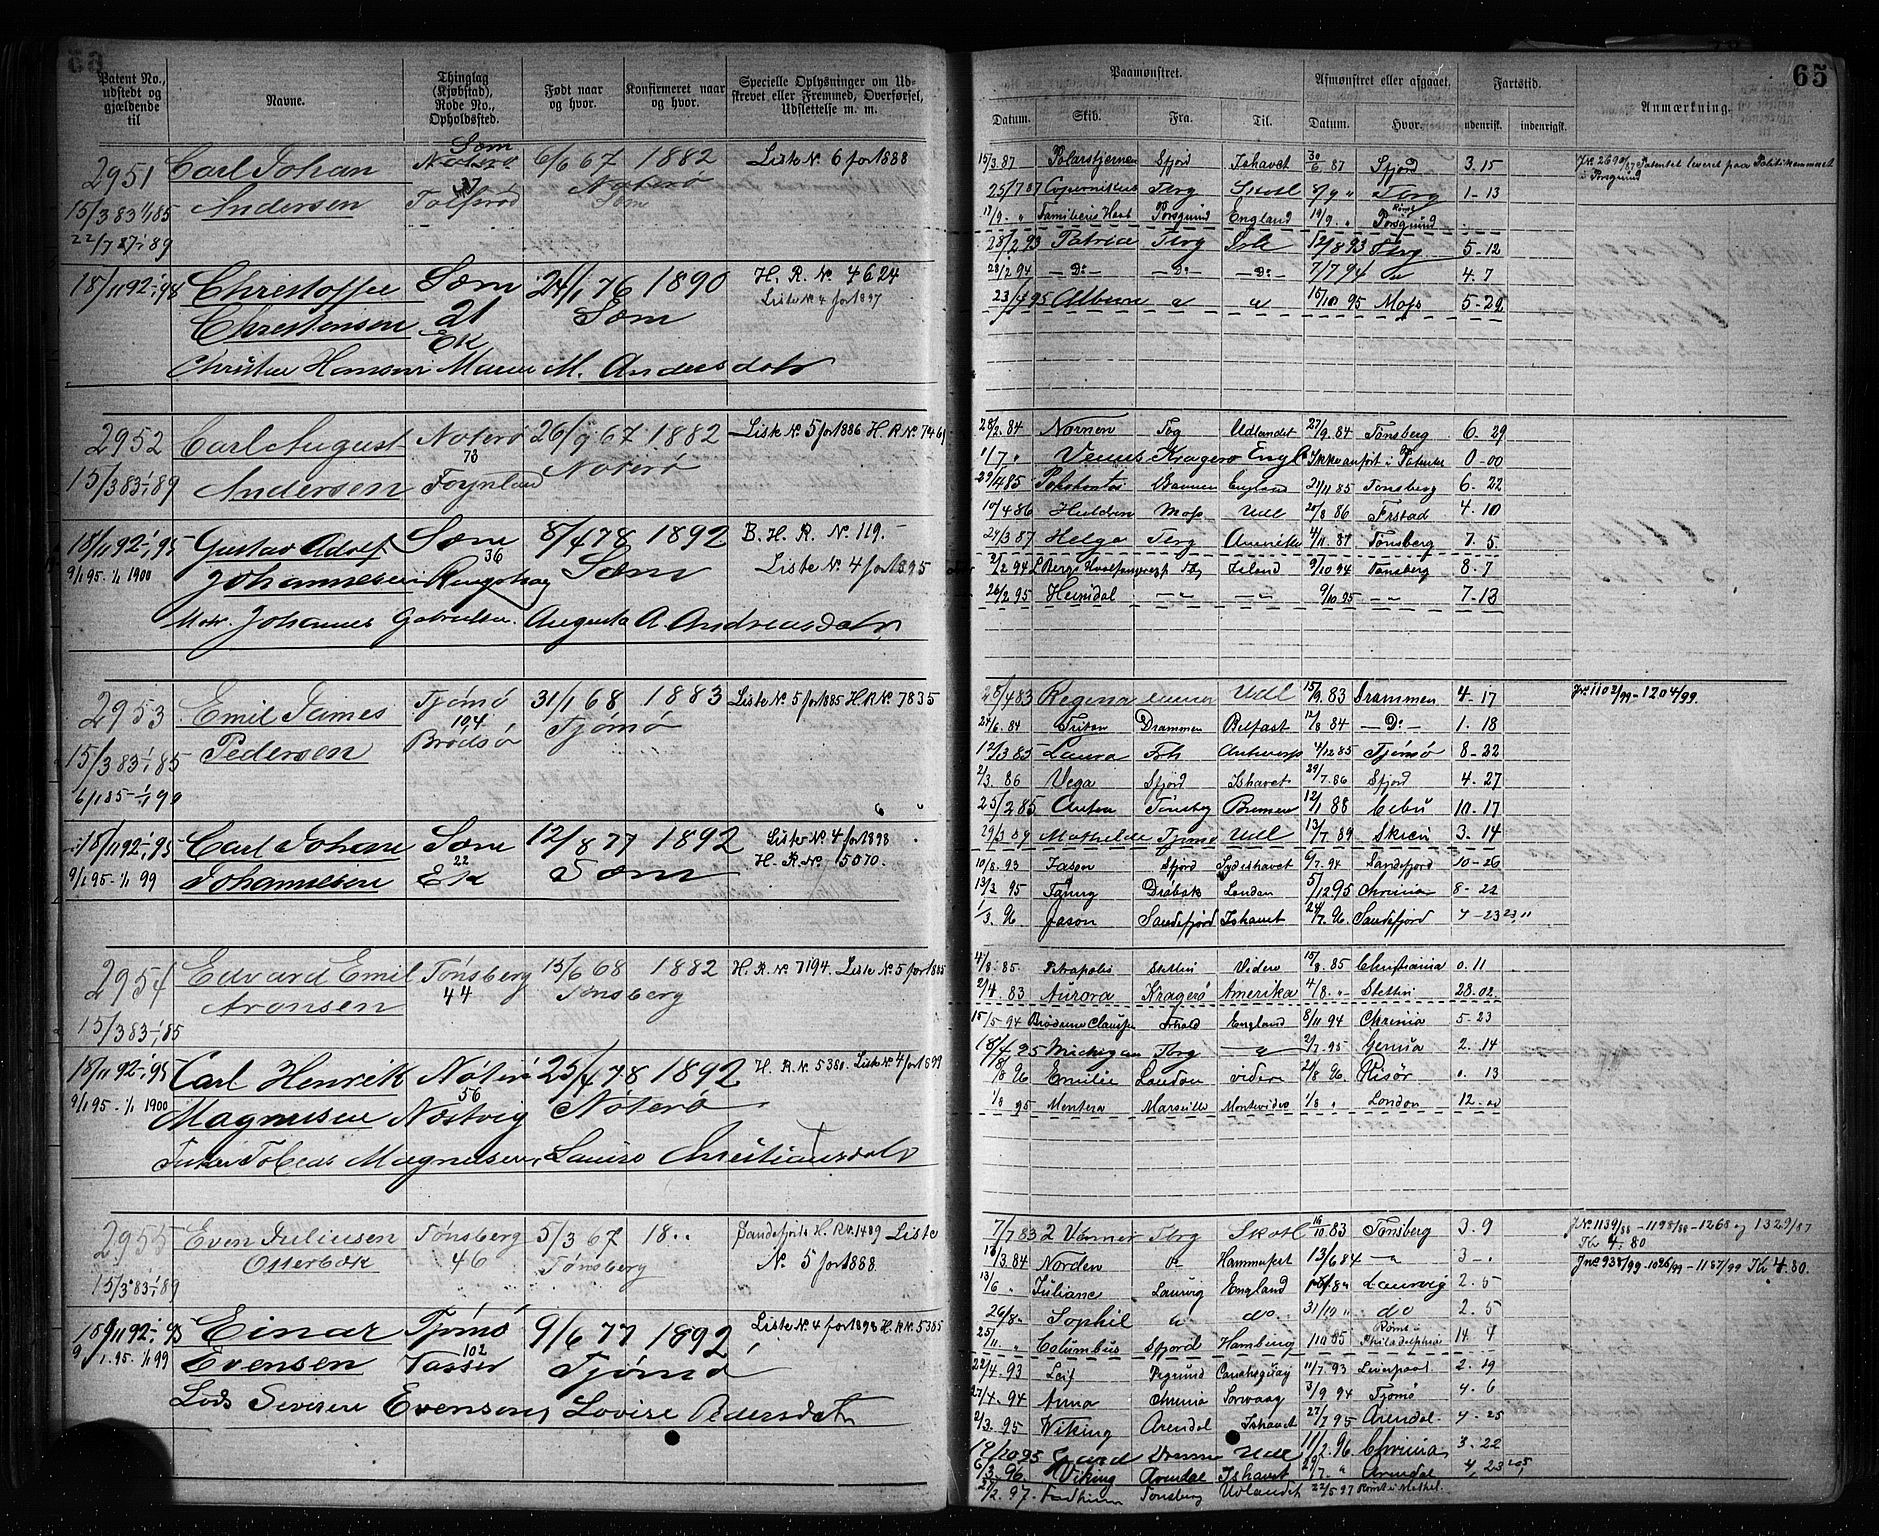 65
Patent No., udstedt og gjældende til
Navne.
Thinglag (Kjøbstad), Rode No., Opholdssted.
Født naar og hvor.
Konfirmeret naar og hvor.
Specielle Oplysninger om Udskrevet eller Fremmed, Overførsel, Udslettelse m. m.
Paamønstret.
Afmønstret eller afgaaet.
Fartstid.
Anmærkning.
Datum. Skib. Fra. Til. Datum. Hvor. udenrigsk. indenrigsk.
2951 Carl Johan Nøterø Sæm 6/6 67 1882 Liste N. 6 for 1888
15/3 83 1/1 85 Andersen Nøterø
22/7 87 1/1 89
15/3.87 Polarstjernen Sfjord Ishavet 30/6 87 Sfjord 3.15
Patentet leveret paa Politikammeret i Porsgrund
25/7 87 Copernikus Tbrg Skotl 8/9 " Tbrg 1-13
17/9. " Familiens Haab Porsgrund England 19/9. " Rømt Porsgrund
28/2 93 Patria Tbrg 12/8 93 Tbrg 5-12
28/2 94 — Do — — Do — — Do 7/7 94 4.7
23/4 95 15/10 95 Moss 5-29
18/11 92-1/1 98 Christoffer Sæm 24/1 76 1890 H. R. N. 4624
Christensen 21 Sæm Liste N. 4 for 1897
Ek
Christian Hansen Maren M. Andersdatr
2952 Carl August Nøterø 26/9 67 1882 Liste No. 5 for 1886 H. R. No. 7461
73
15/3 83-1/1 89 Andersen Føynland Nøterø
28/2. 84 Nornen Tbg Udlandet 27/9. 84 Tønsberg 6. 29
1/7 " Venus Kragerø Engl Ikke anført i Patentet 0-00
29/4 85 Pokahontas England 21/11 85 Tønsberg 6. 22
19/4 86 Huldren Moss Udl 20/8 86 Frstad 4.10
24/3 87 Helga Tbrg Amerika 4/11. 87 Tønsberg 7. 5
Island 9/10 94 Tønsberg 8.7
26/2 95 Heimdal — " — — " — 9/10 95 — " — 7.13
18/11 92-1/1 95 Gustav Adolf Sæm 8/4 78 1892 B. H. R. N. 119.
36
9/1 95. 1/1 1900 Johannesen Ringshaug Sæm Liste No. 4 for 1895
Johannes Gabrielsen. Augusta A. Andreasdatr
2953 Emil James Tjømø 31/1 68 1883 Liste N. 5 for 1885 H.R.N. 7835
104
15/3 83-1/1 85 Pedersen Brødsø Tjømø
6/1 85-1/1 90
28/4 83 Regina Udl 15/9. 83 Drammen 4.17
Jr. 1102/99 - 1204/99.
24/6. 84 Triton Drammen Belfast 12/8 84 — Do — 1. 18
12/3 85 Laura Antwerp 4/12 85 Tjømø 8-22
2/3. 86 Vega Sfjord Ishavet 29/7. 86 Sfjord 4.27
25/2 85 Anton Tønsbg Bremen 12/1 88 Cebu 10.17
29/3 89 Mathilde Tjømø Udl 13/7 89 Skien 3. 14
10/8. 93 Jason Sfjord Sydishavet 6/7. 94 Sandefjord 10-26
13/3 95 Drøbak London 5/12 95 Chrinia 8-22
1/3. 96 Jason Sandefjord Ishavet 24/7. 96 Sandefjord 4-23
18/11 92-1/1 95 Carl Johan Sæm 12/8 77 1892 Liste N. 4 for 1898
22
9/1 95. 1/1 99 Johannesen Ek Sæm H. R. No. 15070.
2954 Edvard Emil Tønsberg 15/6 68 1882 H. R. No. 7194. Liste N. 5 for 1885
Aronsen 44 Tønsberg
15/3 83-1/1 85
4/8. 85 Petropolis Stettin Videre 15/8. 85 Christiania 0.11
2/4. 83 Aurora Kragerø Amerika 4/8. " Stettin 28.02
15/5 94 Brødrene Clausen Frhald England 8/11 94 Chrinia 5-23
18/4 95 Michigan Tbrg — " 2/7. 95 Genua 2. 14
18/8 96 Emilie London videre 21/8 96. Risør 0. 13
1/8 95 Montera Marseille Montevideo 1/8 " London 12.
18/11 92-1/1 95 Carl Henrik Nøterø 25/4 78 1892 H. R. N. 5380. Liste N. 4 for 1899
56
9/1 95. 1/1 1900 Magnussen Næstvig Nøterø
Tobias Magnussen, Laura Christiansdatr
2955 Even Juliusen Tønsberg 5/3 67 18.. Sandefjords H. R. N. 1489 Liste
Otterbæk 46 Tønsberg N. 5 for 1888
15/3 83-1/1 89
7/7. 83 2 Venner Tbrg Skotl 16/10 83 Tønsberg 3. 9
Jr. No. 1139/88 - 1198/88 - 1268 og 1329/87
Kr 4.80
13/3. 84 Norden " Hammefest 13/6 84 — " 3 - .
Jno. 938/99 - 1026/99 - 1187/99 Kr 4.80.
13/6 " Juliane Laurvig England Laurvig 2. 5
26/8- Sophie " do. 31/10 " do 2. 5
25/11. " Columbus Sfjord Hamburg Rømt i Philadelphia 14. 4
22/4. 93 Leif Prgrund 14/7. 93 Liverpool 2. 19
27/4. 94 Anna Chrinia 3/9 94 Tjømø 4. 6
2/3. 95 Viking Arendal Ishavet 27/7 95 Arendal. 4. 25
19/10 95 Udl 11/2. 96 Chrinia, 3. 22
6/3 96. Viking Arendal Ishavet " Arendal 4, 23
97. Tønsberg Udlandet 22/5 97 Rømt i Methel.
18/11 92-1/1 95 Einar Tjømø 9/6 77 1892 Liste N. 4 for 1898 H. R. No. 5385
102
9/1. 95. 1/1 99 Evensen Vasser Tjømø
Lods Severin Evensen, Lovise Pedersdatr